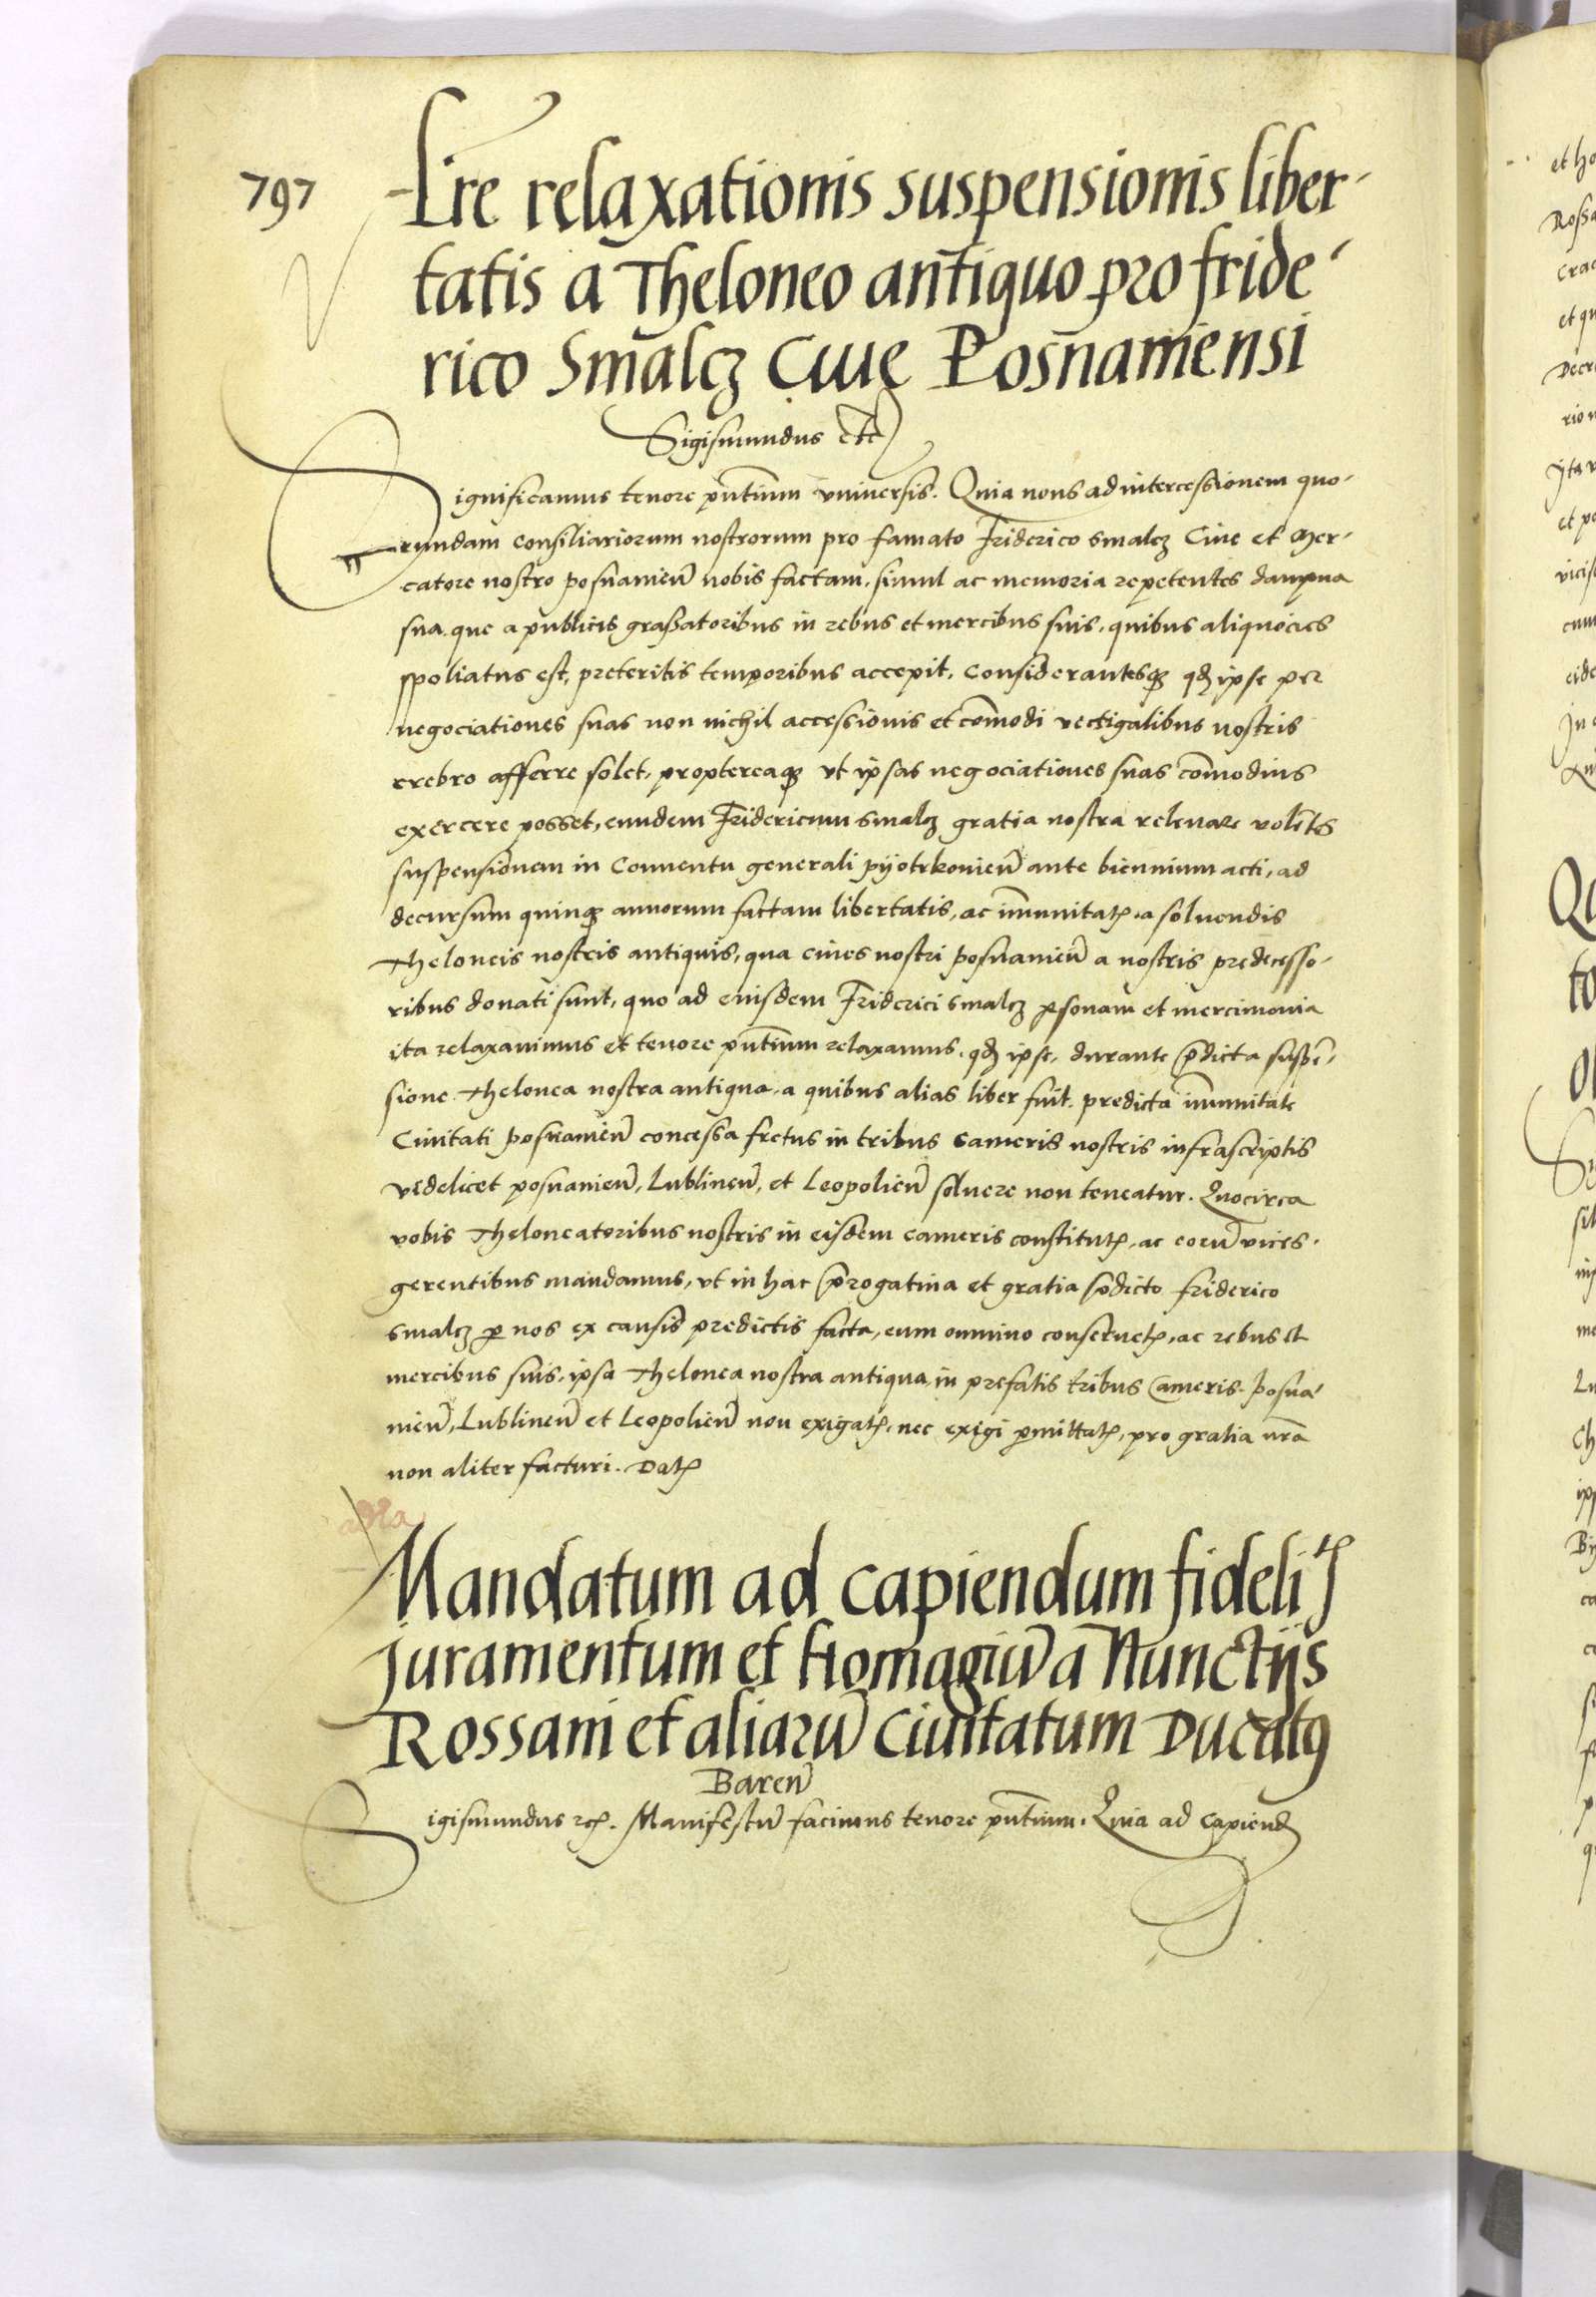 797
Lr̃e relaxationis suspensionis liber-
tatis a Theloneo antiquo pro fride-
rico Smalcz Ciue Posnaniensi
Sigismundus etc̃
Significamus tenore pñtium vniuersis. Quia nons ad intercessionem quo-
rundam consiliariorum nostrorum pro famato Friderico smalcz Ciue et Mer-
catore nostro posnanieñ nobis factam. simul ac memoria repetentes dampna
sua. que a publicis graßatoribus in rebus et mercibus suis, quibus aliquocies
spoliatus est, preteritis temporibus accepit. considerantesqȝ qđ ipse per
negociationes suas non nichil accessionis et com̃odi vectigalibus nostris
crebro afferre solet, proptereaqȝ vt ipsas negociationes suas com̃odius
exercere posset, eundem Fridericum smalcz gratia nostra releuare volẽtes
suspensionem in Conuentu generali pijotrkouieñ ante biennium acti, ad
decursum quinqȝ annorum factam libertatis, ac im̃unitatꝭ. a soluendis
Theloneis nostris antiquis, qua ciues nostri posnanieñ a nostris predecesso-
ribus donati sunt, quo ad eiusdem Friderici smalcz ꝑsonam et mercimonia
ita relaxauimus et tenore pñtium relaxamus. qđ ipse, durante p̃dicta suspẽ-
sione Thelonea nostra antiqua. a quibus alias liber fuit. predicta im̃unitate
Ciuitati posnanieñ concessa fretus in tribus cameris nostris infrascriptis
videlicet posnanieñ, Lublineñ, et Leopolieñ soluere non teneatur. Quocirca
vobis Theloneatoribus nostris in eisdem cameris constitutꝭ, ac eorũ vices-
gerentibus mandamus, vt in hac p̃rogatiua et gratia p̃dicto friderico
smalcz ꝑ nos ex causis predictis facta, eum omnino conseruetꝭ, ac rebus et
mercibus suis. ipsa Thelonea nostra antiqua in prefatis tribus Cameris. posna-
nieñ, Lublineñ et Leopolieñ non exigatꝭ. nec exigi ꝑmittatꝭ, pro gratia nr̃a
non aliter facturi. Datꝭ
Mandatum ad capiendum fidelitꝭ
juramentum et Homagiũ a Nunctijs
Rossani et aliarũ Ciuitatum Ducatꝰ
Bareñ
Sigismundus etc̃. Manifestũ facimus tenore pñtium. Quia ad capienđ